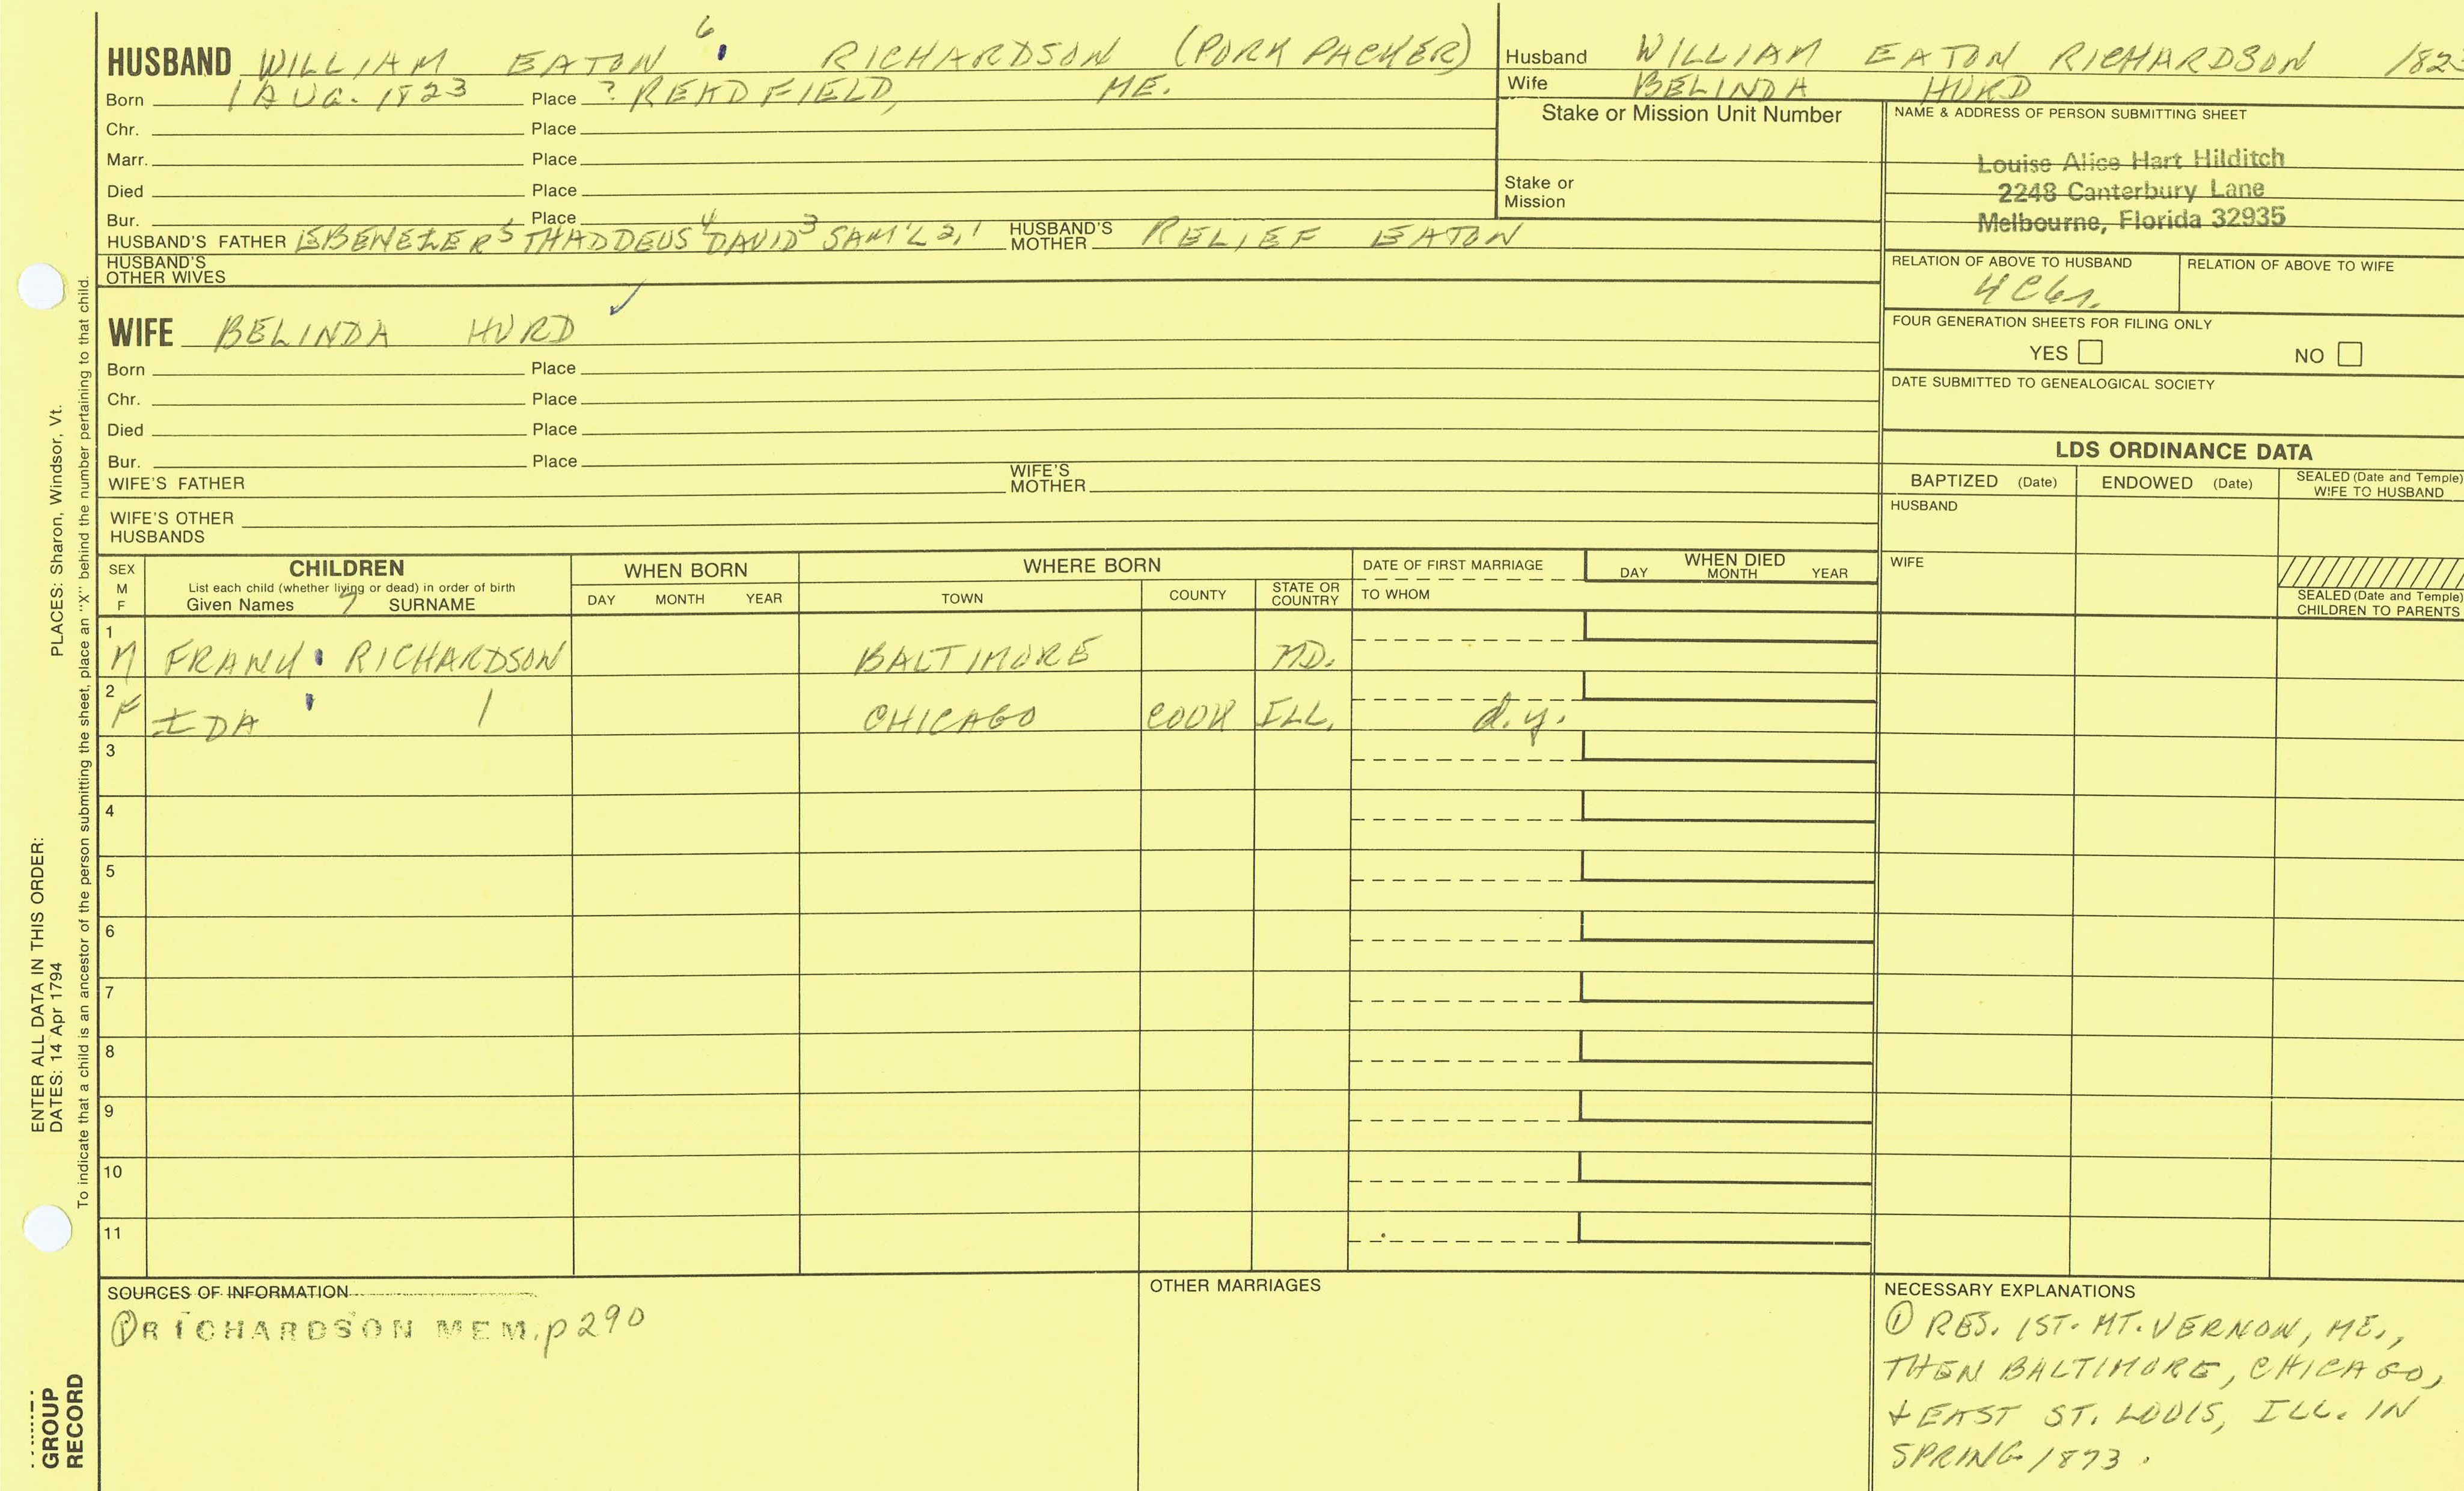 HUSBAND WILLIAM EATON 6 RICHARDSON (PORK PACKER)
Born 1 AUG. 1823 Place ? READFIELD, ME.
Chr. Place
Marr. Place
Died Place
Bur. Place
HUSBAND'S FATHER EBENEZER 5 THADDEUS 4 DAVID 3 SAM'L 2,1 HUSBAND'S MOTHER RELIEF EATON
HUSBAND'S OTHER WIVES
Husband WILLIAM EATON RICHARDSON 1823
Wife BELINDA HURD
Stake or Mission Unit Number
Stake or
Mission
NAME & ADDRESS OF PERSON SUBMITTING SHEET
Louise Alice Hart Hilditch
2248 Canterbury Lane
Melbourne, Florida 32935
RELATION OF ABOVE TO HUSBAND RELATION OF ABOVE TO WIFE
4C6r.
FOUR GENERATION SHEETS FOR FILING ONLY
YES NO
DATE SUBMITTED TO GENEALOGICAL SOCIETY
WIFE BELINDA HURD ✓
Born Place
Chr. Place
Died Place
Bur. Place
WIFE'S FATHER WIFE'S MOTHER
WIFE'S OTHER
HUSBANDS
LDS ORDINANCE DATA
BAPTIZED (Date) ENDOWED (Date) SEALED (Date and Temple) WIFE TO HUSBAND
HUSBAND
WIFE
SEALED (Date and Temple) CHILDREN TO PARENTS
SEX M F
CHILDREN
List each child (whether living or dead) in order of birth
Given Names 7 SURNAME
WHEN BORN
DAY MONTH YEAR
WHERE BORN
TOWN COUNTY STATE OR COUNTRY
DATE OF FIRST MARRIAGE
TO WHOM
WHEN DIED
DAY MONTH YEAR
1 M FRANK RICHARDSON BALTIMORE MD.
2 F IDA BALTIMORE CHICAGO COOK ILL. d.y.
3
4
5
6
7
8
9
10
11
SOURCES OF INFORMATION
① RICHARDSON MEM. p 290
OTHER MARRIAGES
NECESSARY EXPLANATIONS
① RES. 1ST. MT. VERNON, ME.,
THEN BALTIMORE, CHICAGO,
+ EAST ST. LOUIS, ILL. IN
SPRING 1873.
ENTER ALL DATA IN THIS ORDER:
DATES: 14 Apr 1794 PLACES: Sharon, Windsor, Vt.
To indicate that a child is an ancestor of the person submitting the sheet, place an "X" behind the number pertaining to that child.
GROUP
RECORD